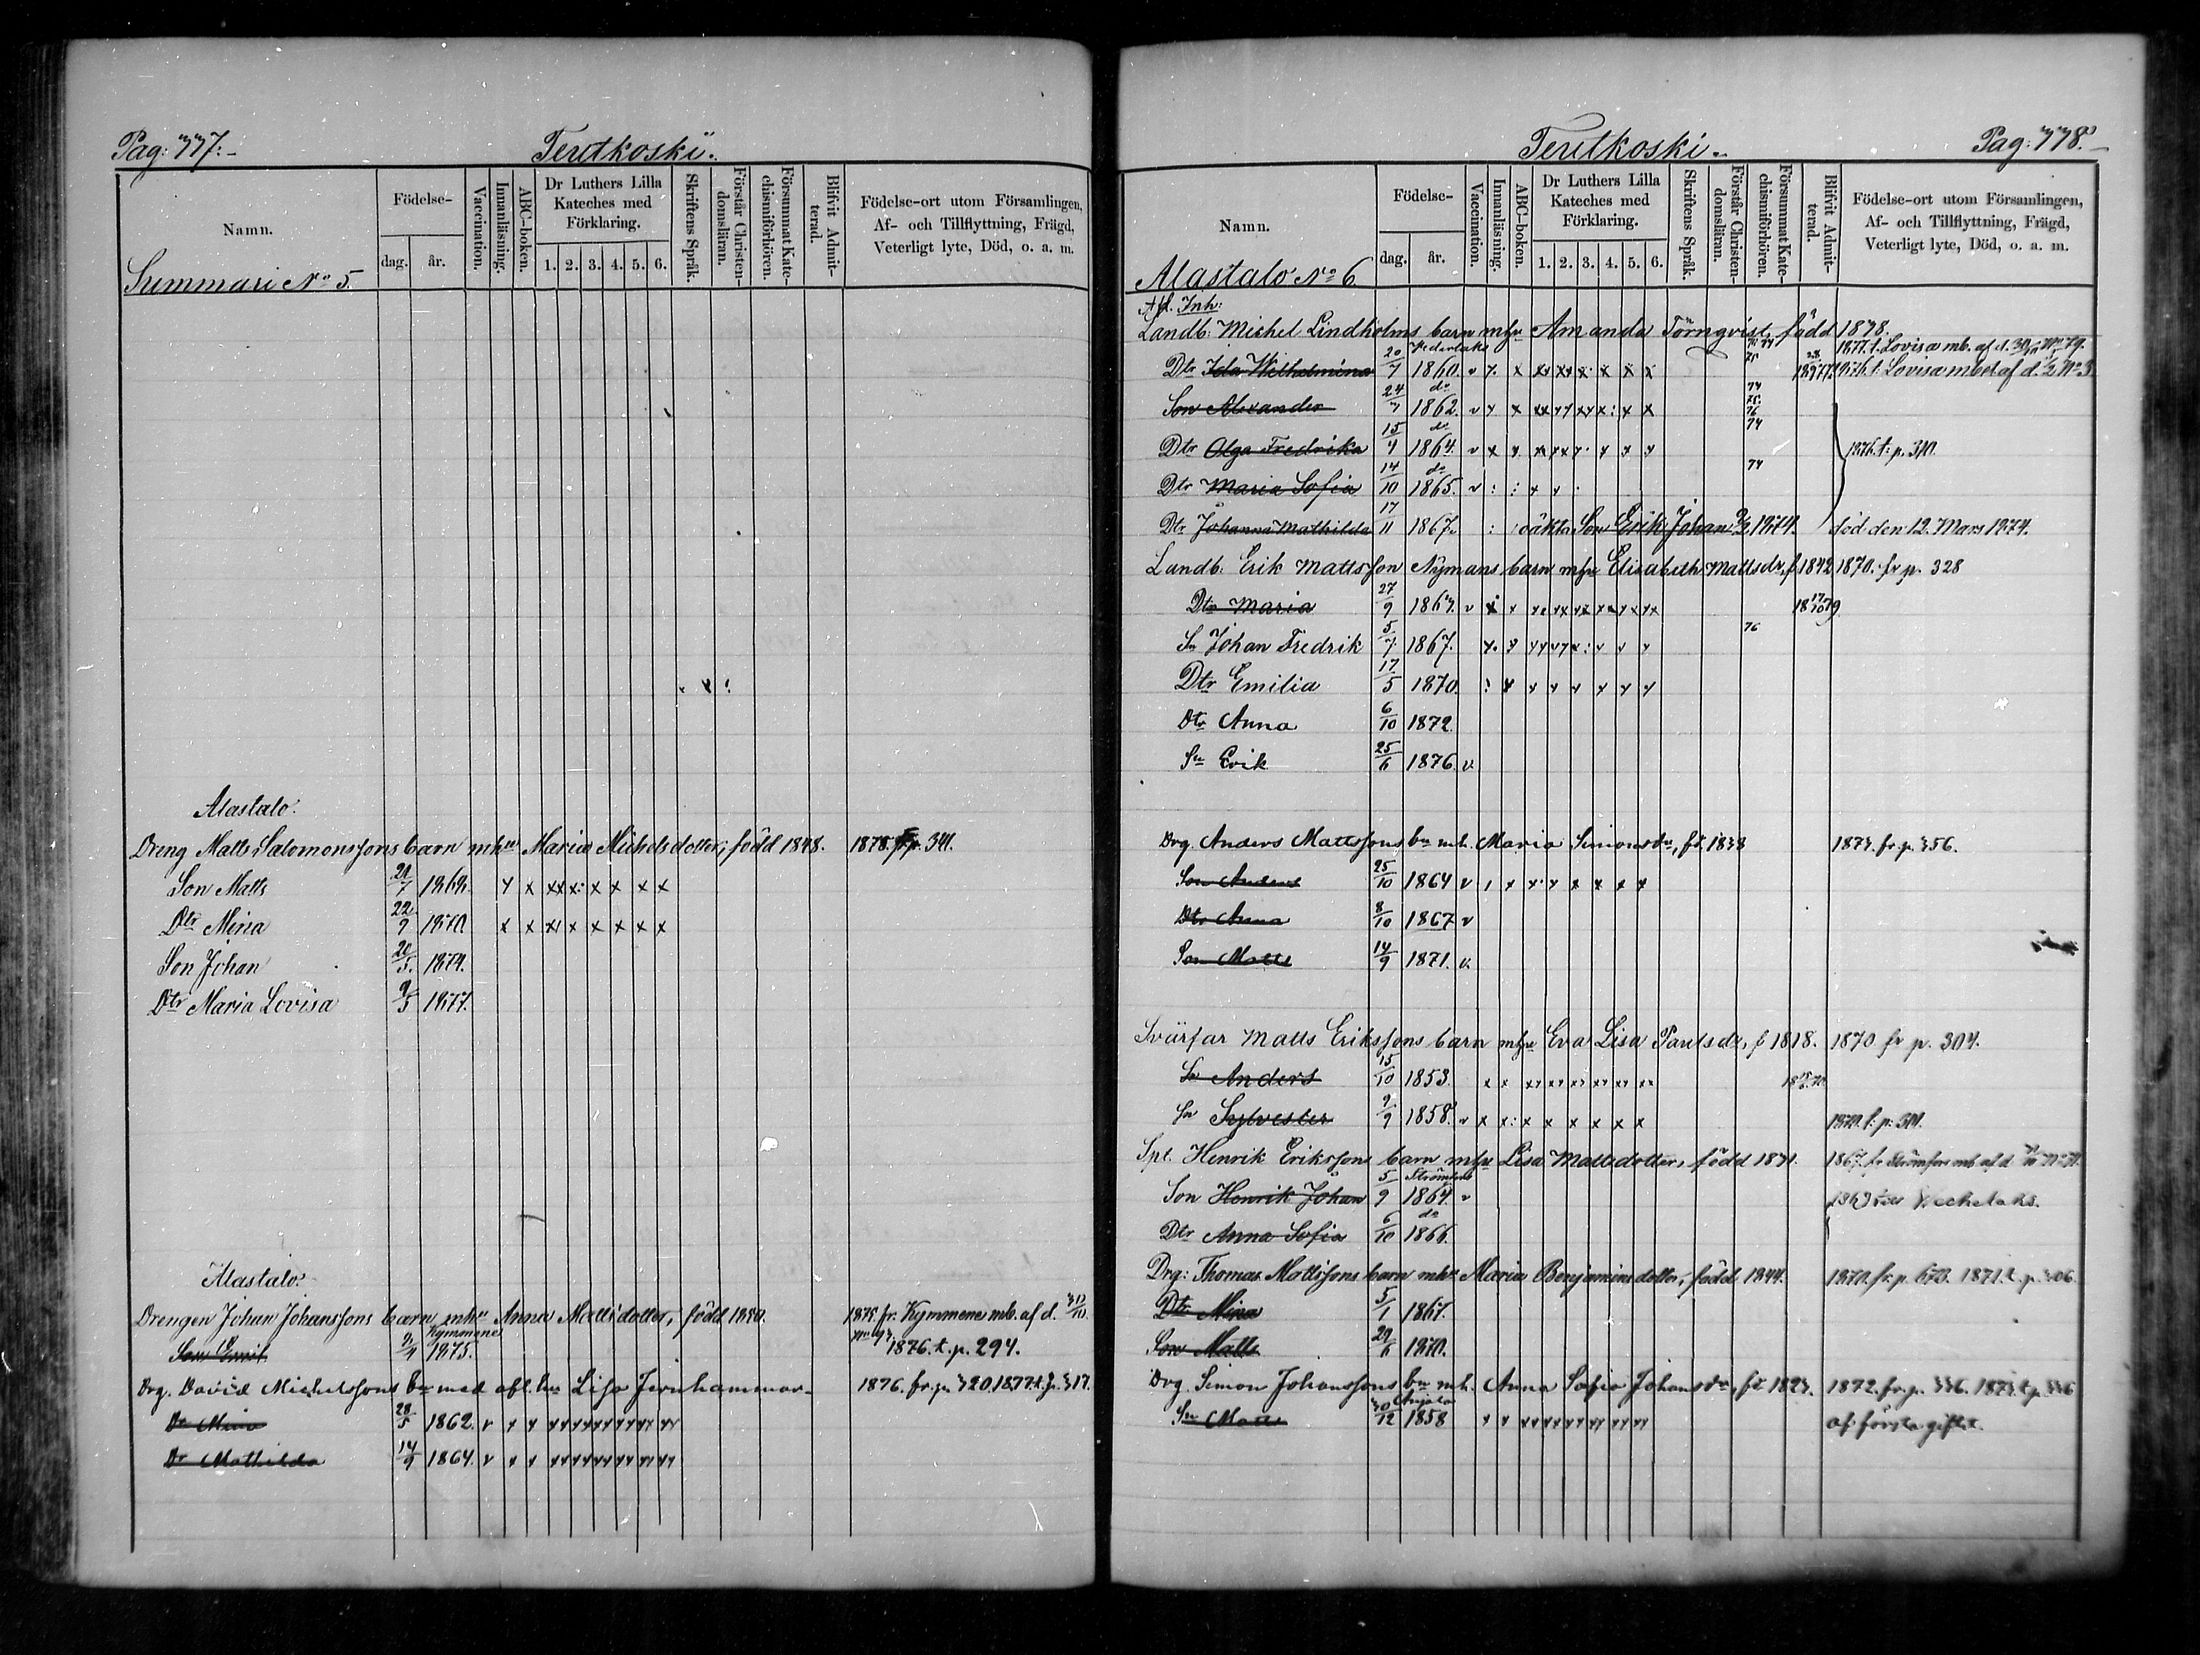 Pag: 777.
Terutkoski.
Namn.
Födelse-
dag. år.
Vaccination.
Innanläsning.
ABC-boken.
Dr Luthers Lilla Kateches med Förklaring.
1. 2. 3. 4. 5. 6.
Skriftens Språk.
Förstår Christendomsläran.
Försummat Katechismiförhören.
Blifvit Admitterad.
Födelse-ort utom Församlingen,
Af- och Tillflyttning, Frägd,
Veterligt lyte, Död, o. a. m.
Summari No 5.
Alastalo.
Dreng Matts Salomonssons barn mhu Maria Michelsdotter, född 1848. 1878. fr p. 341.
Son Matts 21/7 1868.
Dtr Mina 22/9 1870
Son Johan 20/5. 1874.
Dtr Maria Lovisa 9/5 1877.
Alastalo.
Drengen Johan Johanssons barn mhu Anna Mattsdotter, född 1850. 1875. fr. Kymmene mb. af d.
Kymmene
Son Emil 1875. 1876. t. p. 294.
Drg. David Michelssons bn med afl. hu Lisa Jernhammar 1876. fr. p. 320. 1877 t. p. 317.
Dr Mina 28/5 1862. v
Dr Mathilda 14/9 1864. v
Terutkoski.
Pag: 778.
Namn.
Födelse-
dag. år.
Vaccination.
Innanläsning.
ABC-boken.
Dr Luthers Lilla Kateches med Förklaring.
1. 2. 3. 4. 5. 6.
Skriftens Språk.
Förstår Christendomsläran.
Försummat Katechismiförhören.
Blifvit Admitterad.
Födelse-ort utom Församlingen,
Af- och Tillflyttning, Frägd,
Veterligt lyte, Död, o. a. m.
Alastalo No 6
Afl. Inh:
Landb. Michel Lindholms barn mhu Amanda Törnqvist, född 1878.
1877. t. Lovisa mb. af d.
Dtr Ida Wilhelmina 20/7 1860. v t. Lovisa mbet af d.
Son Alexander 24/7 do 1862. v 74 75. 76
Dtr Olga Fredrika 15/4 do 1864. v 74 1876. t: p. 310.
Dtr Maria Sofia 14/10 do 1865. v 74
Dtr Johanna Mathilda 17/11 1867. oäkta Son Erik Johan 1874. död den 12. Mars 1874.
Landb. Erik Mattsson Nymans barn mhu Elisabeth Mattsdr, f. 1842 1870. fr p. 328
Dtr Maria 27/9 1863. v 18 17/10 79
Sn Johan Fredrik 5/7 1867. 76
Dtr Emilia 17/5 1870.
Dtr Anna 6/10 1872.
Sn Erik 25/6 1876. v.
Drg Anders Mattssons bn mh. Maria Simonsdr, fd. 1838 1873. fr p. 356.
Son Anders 25/10 1864 v
Dtr Anna 8/10 1867 v
Son Matts 14/9 1871. v.
Svärfar Matts Erikssons barn mhu Eva Lisa Paulsdr, f 1818. 1870 fr p. 304.
Sn Anders 15/10 1853.
Sn Sylvester 9/9 1858. v
Spl. Henrik Erikssons barn mhu Lisa Mattsdotter, född 1831. 1867. fr Strömfors mb. af d.
Strömfors
Son Henrik Johan 5/9 1864. v
Dtr Anna Sofia 6/10 do 1866.
Drg: Thomas Mattssons barn mhu Maria Benjaminsdotter, född 1844. 1870. fr. p. 1871. t. p. 306
Dtr Mina 5/1 1867.
Son Matts 29/6 1870.
Drg. Simon Johanssons bn mh. Anna Sofia Johansdr, fd 1823. 1872. fr. p. 336. 1873. t. p. 336
Anjala
Sn Matts 30/12 1858 af första giftet.